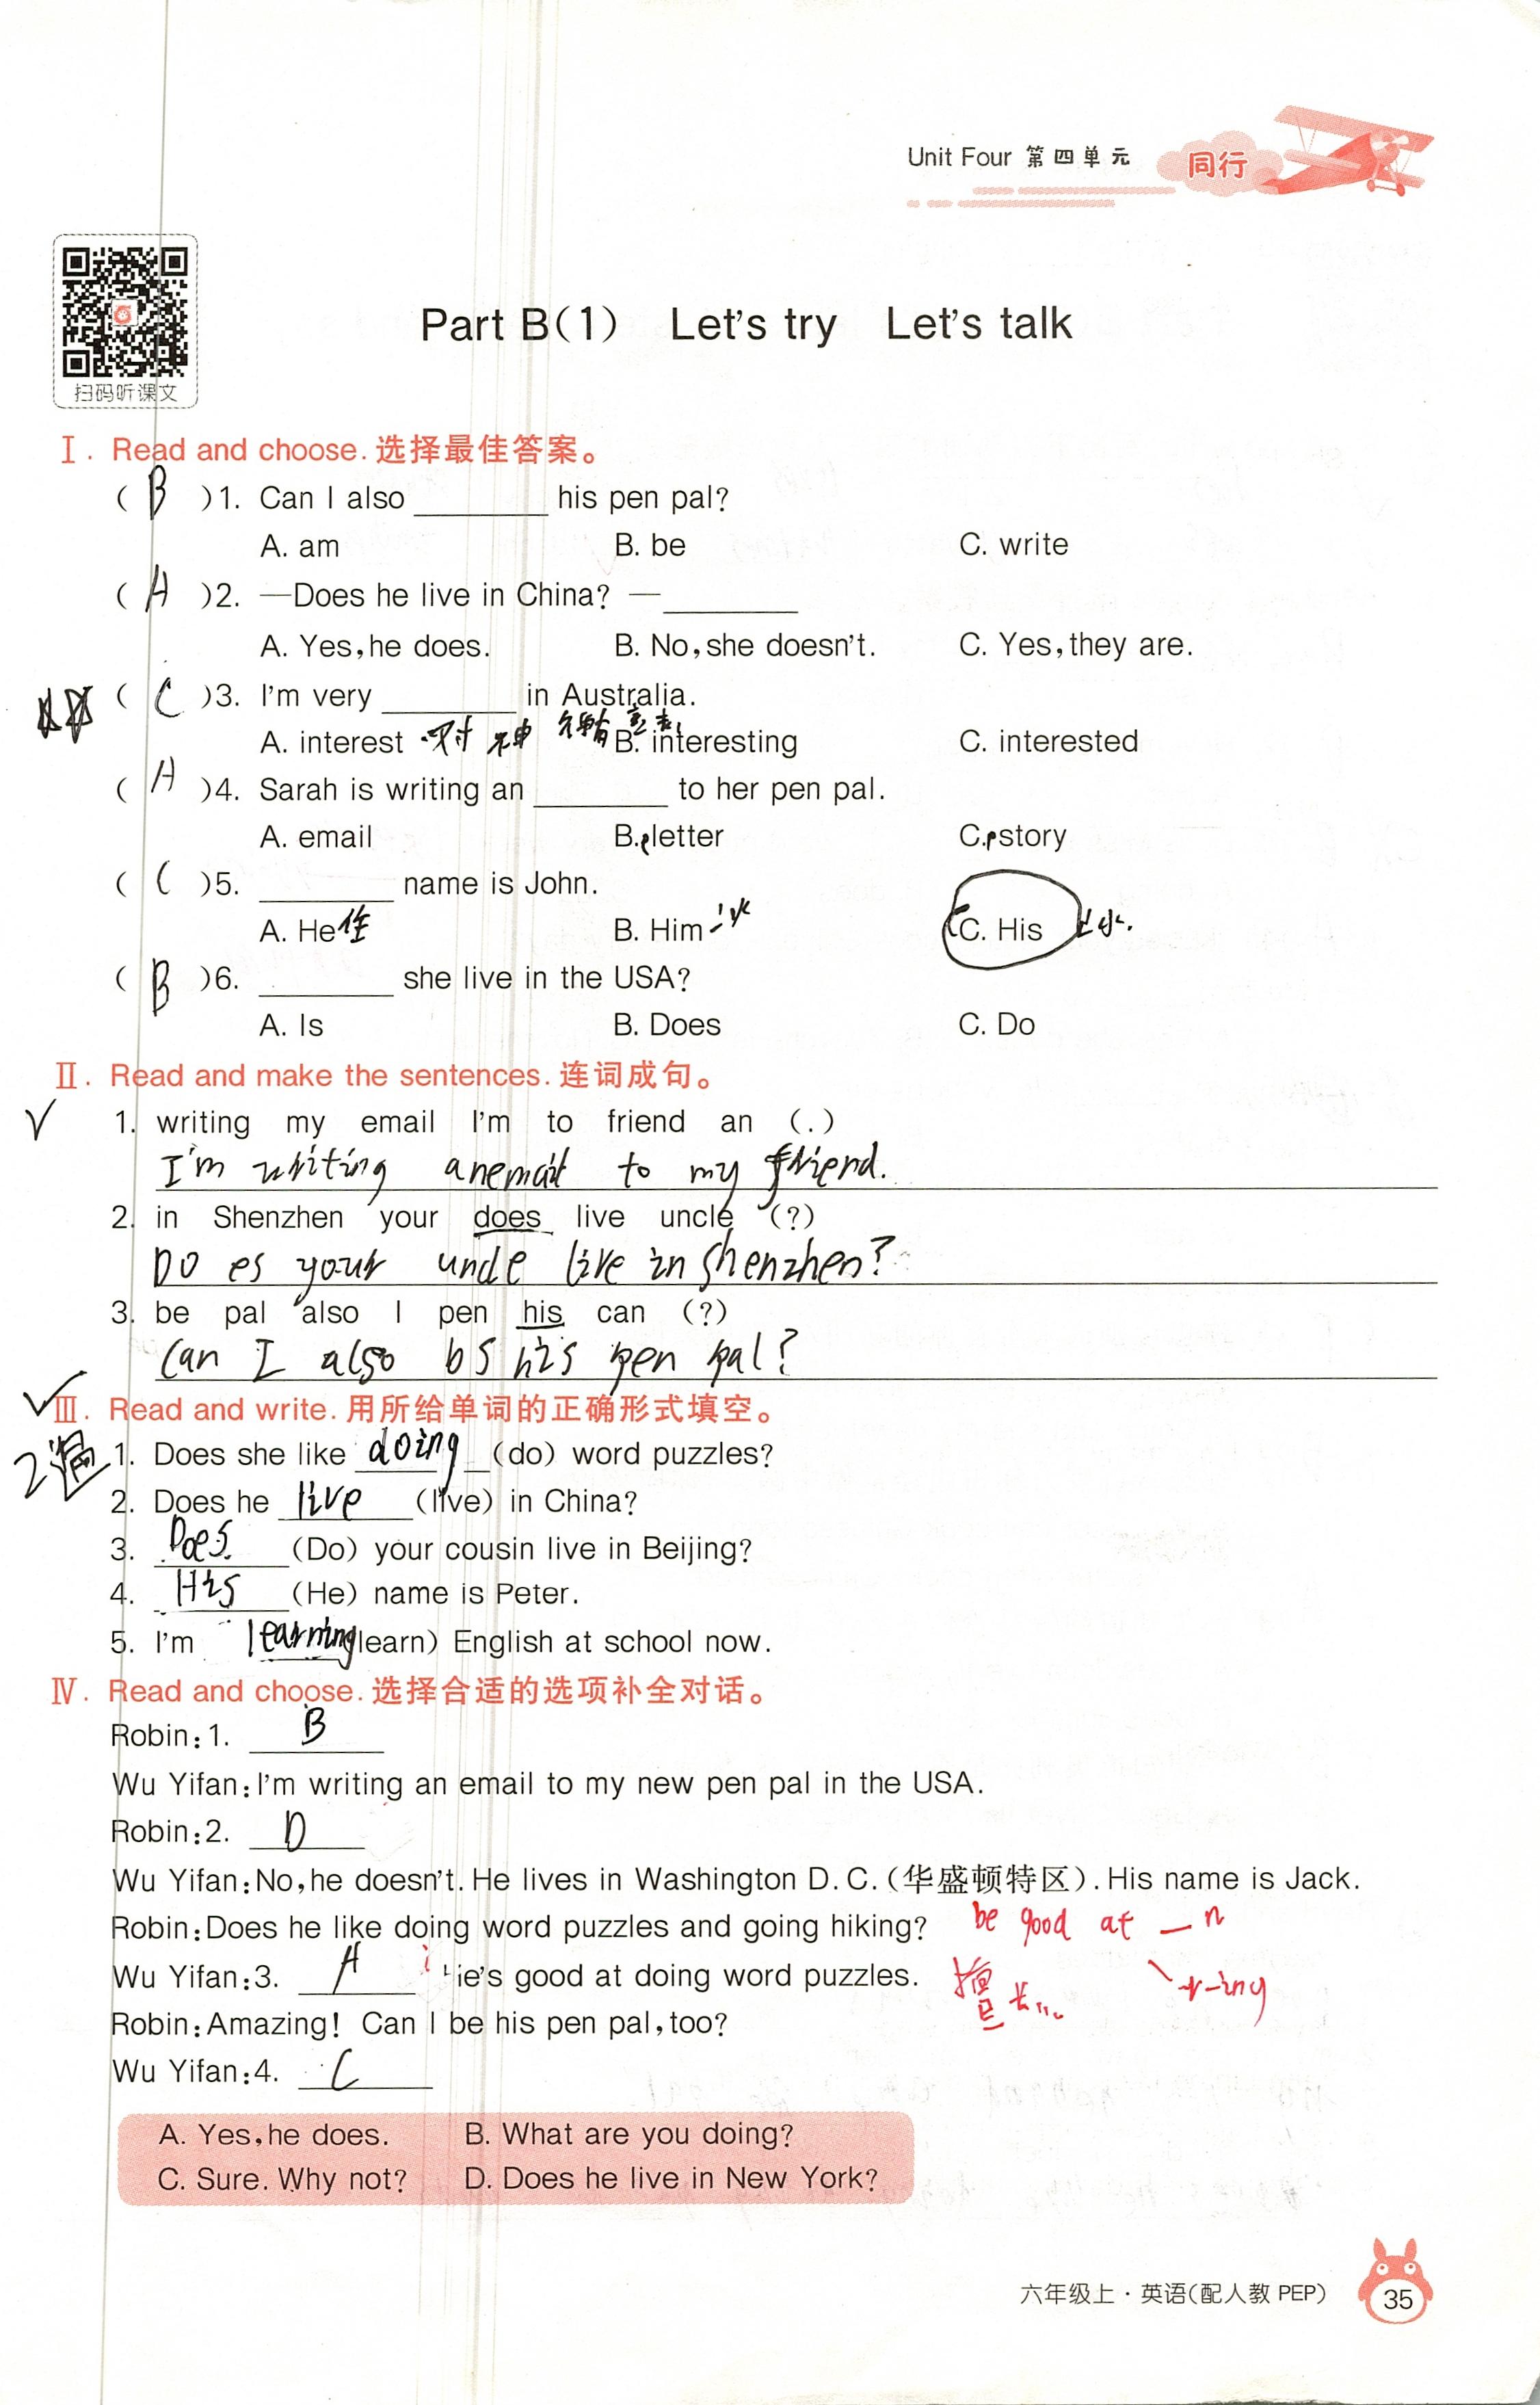 Unit Four 第四单元 同行
扫码听课文
Part B(1) Let's try Let's talk
Ⅰ. Read and choose. 选择最佳答案。
( B )1. Can I also ________ his pen pal?
A. am B. be C. write
( A )2. —Does he live in China? —________
A. Yes, he does. B. No, she doesn't. C. Yes, they are.
( C )3. I'm very ________ in Australia.
A. interest B. interesting C. interested
( A )4. Sarah is writing an ________ to her pen pal.
A. email B. letter C. story
( C )5. ________ name is John.
A. He B. Him C. His
( B )6. ________ she live in the USA?
A. Is B. Does C. Do
Ⅱ. Read and make the sentences. 连词成句。
1. writing my email I'm to friend an (.)
I'm writing an email to my friend.
2. in Shenzhen your does live uncle (?)
Does your uncle live in Shenzhen?
3. be pal also I pen his can (?)
Can I also bs his pen pal?
Ⅲ. Read and write. 用所给单词的正确形式填空。
2遍
1. Does she like doing (do) word puzzles?
2. Does he live (live) in China?
3. Does (Do) your cousin live in Beijing?
4. His (He) name is Peter.
5. I'm learning learn) English at school now.
Ⅳ. Read and choose. 选择合适的选项补全对话。
Robin: 1. B
Wu Yifan: I'm writing an email to my new pen pal in the USA.
Robin: 2. D
Wu Yifan: No, he doesn't. He lives in Washington D.C. (华盛顿特区). His name is Jack.
Robin: Does he like doing word puzzles and going hiking? be good at — n
Wu Yifan: 3. A He's good at doing word puzzles. 擅长... v-ing
Robin: Amazing! Can I be his pen pal, too?
Wu Yifan: 4. C
A. Yes, he does. B. What are you doing?
C. Sure. Why not? D. Does he live in New York?
六年级上·英语(配人教 PEP) 35